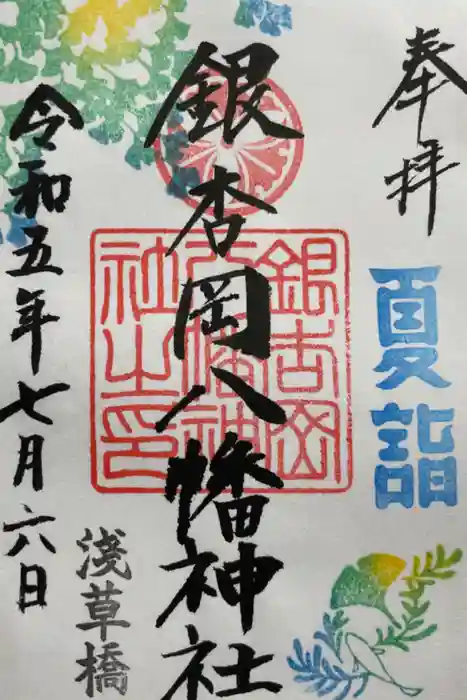 奉拝
夏詣
銀杏岡八幡神社
銀杏岡
八幡神
社之印
令和五年七月六日
浅草橋